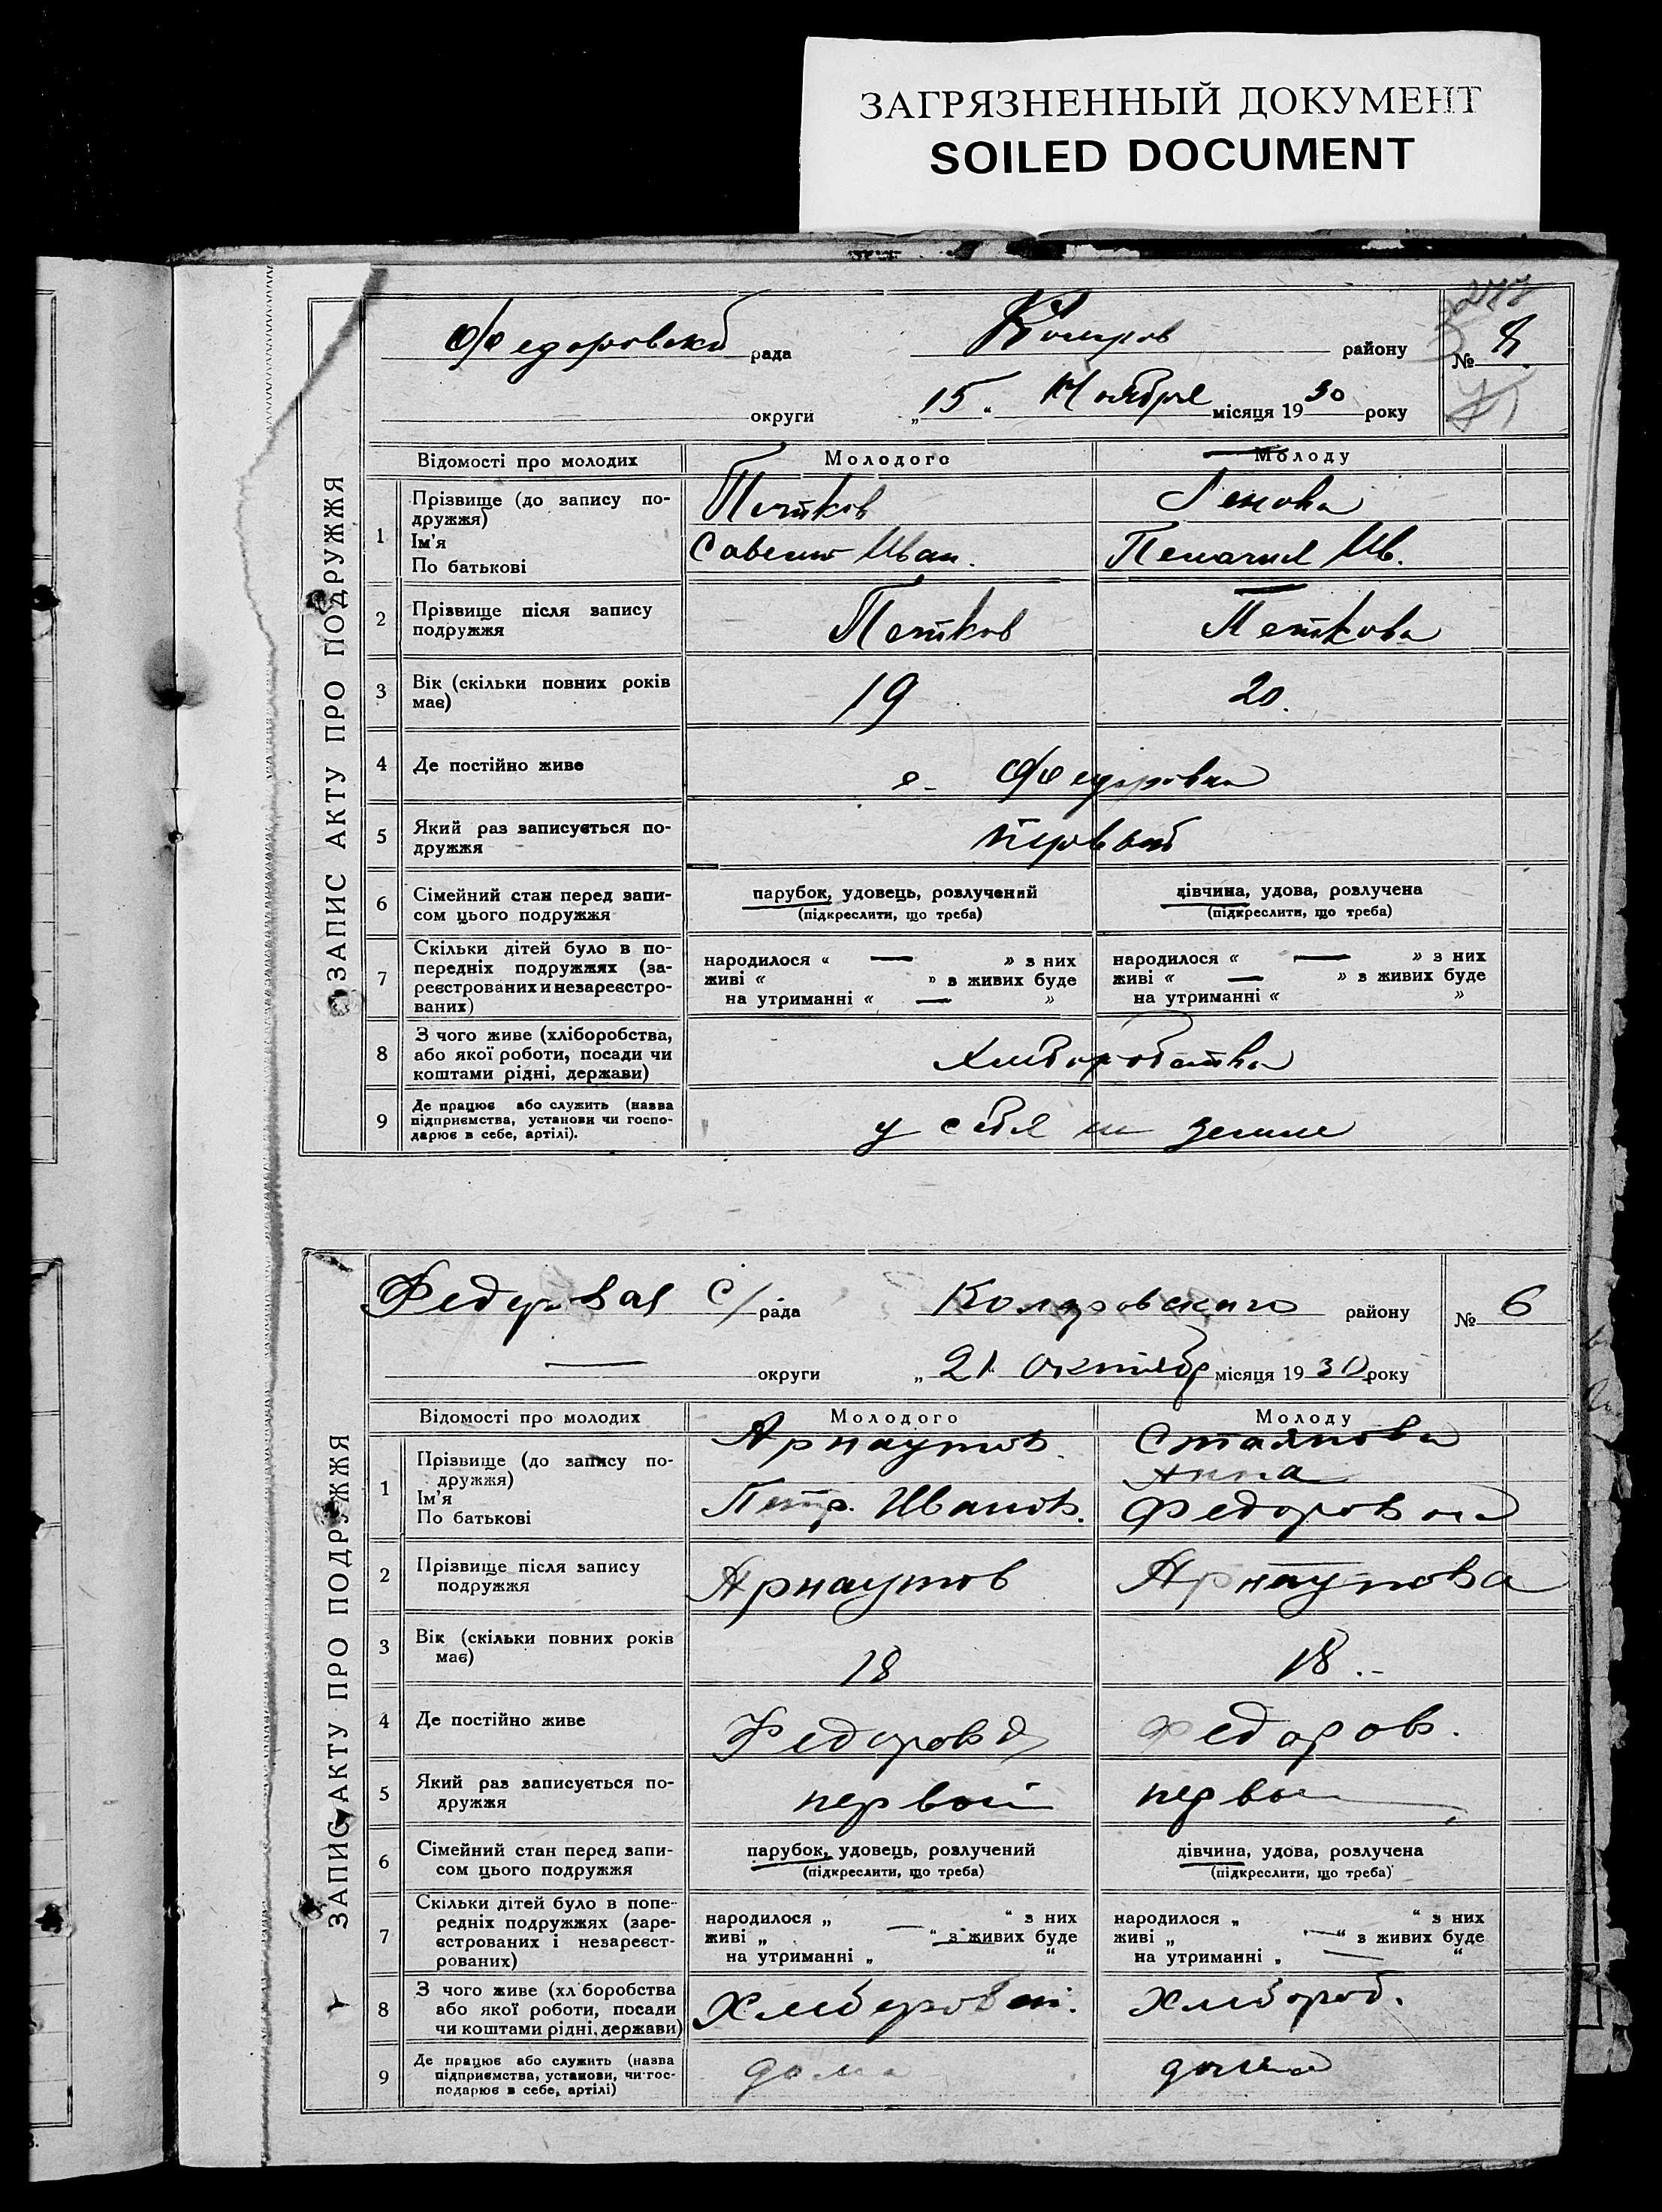 ЗАГРЯЗНЕННЫЙ ДОКУМЕНТ
SOILED DOCUMENT
277
Федоровской рада района району № 8
округи „15“ Ноября місяця 1930 року
ЗАПИС АКТУ ПРО ПОДРУЖЖЯ
Відомості про молодих Молодого Молоду
1 Прізвище (до запису по-
дружжя)
Ім'я
По батькові
Петков Генова
Иван. Пелагия Ив.
2 Прізвище після запису
подружжя
Петков Петкова
3 Вік (скільки повних років
має)
19 20.
4 Де постійно живе
с. Федоровка
5 Який раз записується по-
дружжя
первый
6 Сімейний стан перед запи-
сом цього подружжя
парубок, удовець, розлучений дівчина, удова, розлучена
(підкреслити, що треба) (підкреслити, що треба)
7 Скільки дітей було в по-
передніх подружжях (за-
реєстрованих и незареєстро-
ваних)
народилося « — » з них народилося « — » з них
живі « » з живих буде живі « — » з живих буде
на утриманні « — » на утриманні « »
8 З чого живе (хліборобства,
або якої роботи, посади чи
коштами рідні, держави)
9 Де працює або служить (назва
підприємства, установи чи госпо-
дарює в себе, артілі).
у себя на земле
ЗАПИС АКТУ ПРО ПОДРУЖЖЯ
с/рада Коларовского району № 6
— округи „21 октябр місяця 1930 року
Відомості про молодих Молодого Молоду
1 Прізвище (до запису по-
дружжя)
Ім'я
По батькові
Арнаутов Стоянова
Анна
Петр. Иванов. Федоровна
2 Прізвище після запису
подружжя
Арнаутов Арнаутова
3 Вік (скільки повних років
має)
18 18.-
4 Де постійно живе
Федоровка Федоров.
5 Який раз записується по-
дружжя
первой первой
6 Сімейний стан перед запи-
сом цього подружжя
парубок, удовець, розлучений дівчина, удова, розлучена
(підкреслити, що треба) (підкреслити, що треба)
7 Скільки дітей було в попе-
редніх подружжях (заре-
єстрованих і незареєст-
рованих)
народилося „ “ з них народилося „ “ з них
живі „ — “ з живих буде живі „ — “ з живих буде
на утриманні „ “ на утриманні „ — “
8 З чого живе (хл боробства
або якої роботи, посади
чи коштами рідні, держави)
Хлебороб.
9 Де працює або служить (назва
підприємства, установи, чи гос-
подарює в себе, артілі)
дома дома